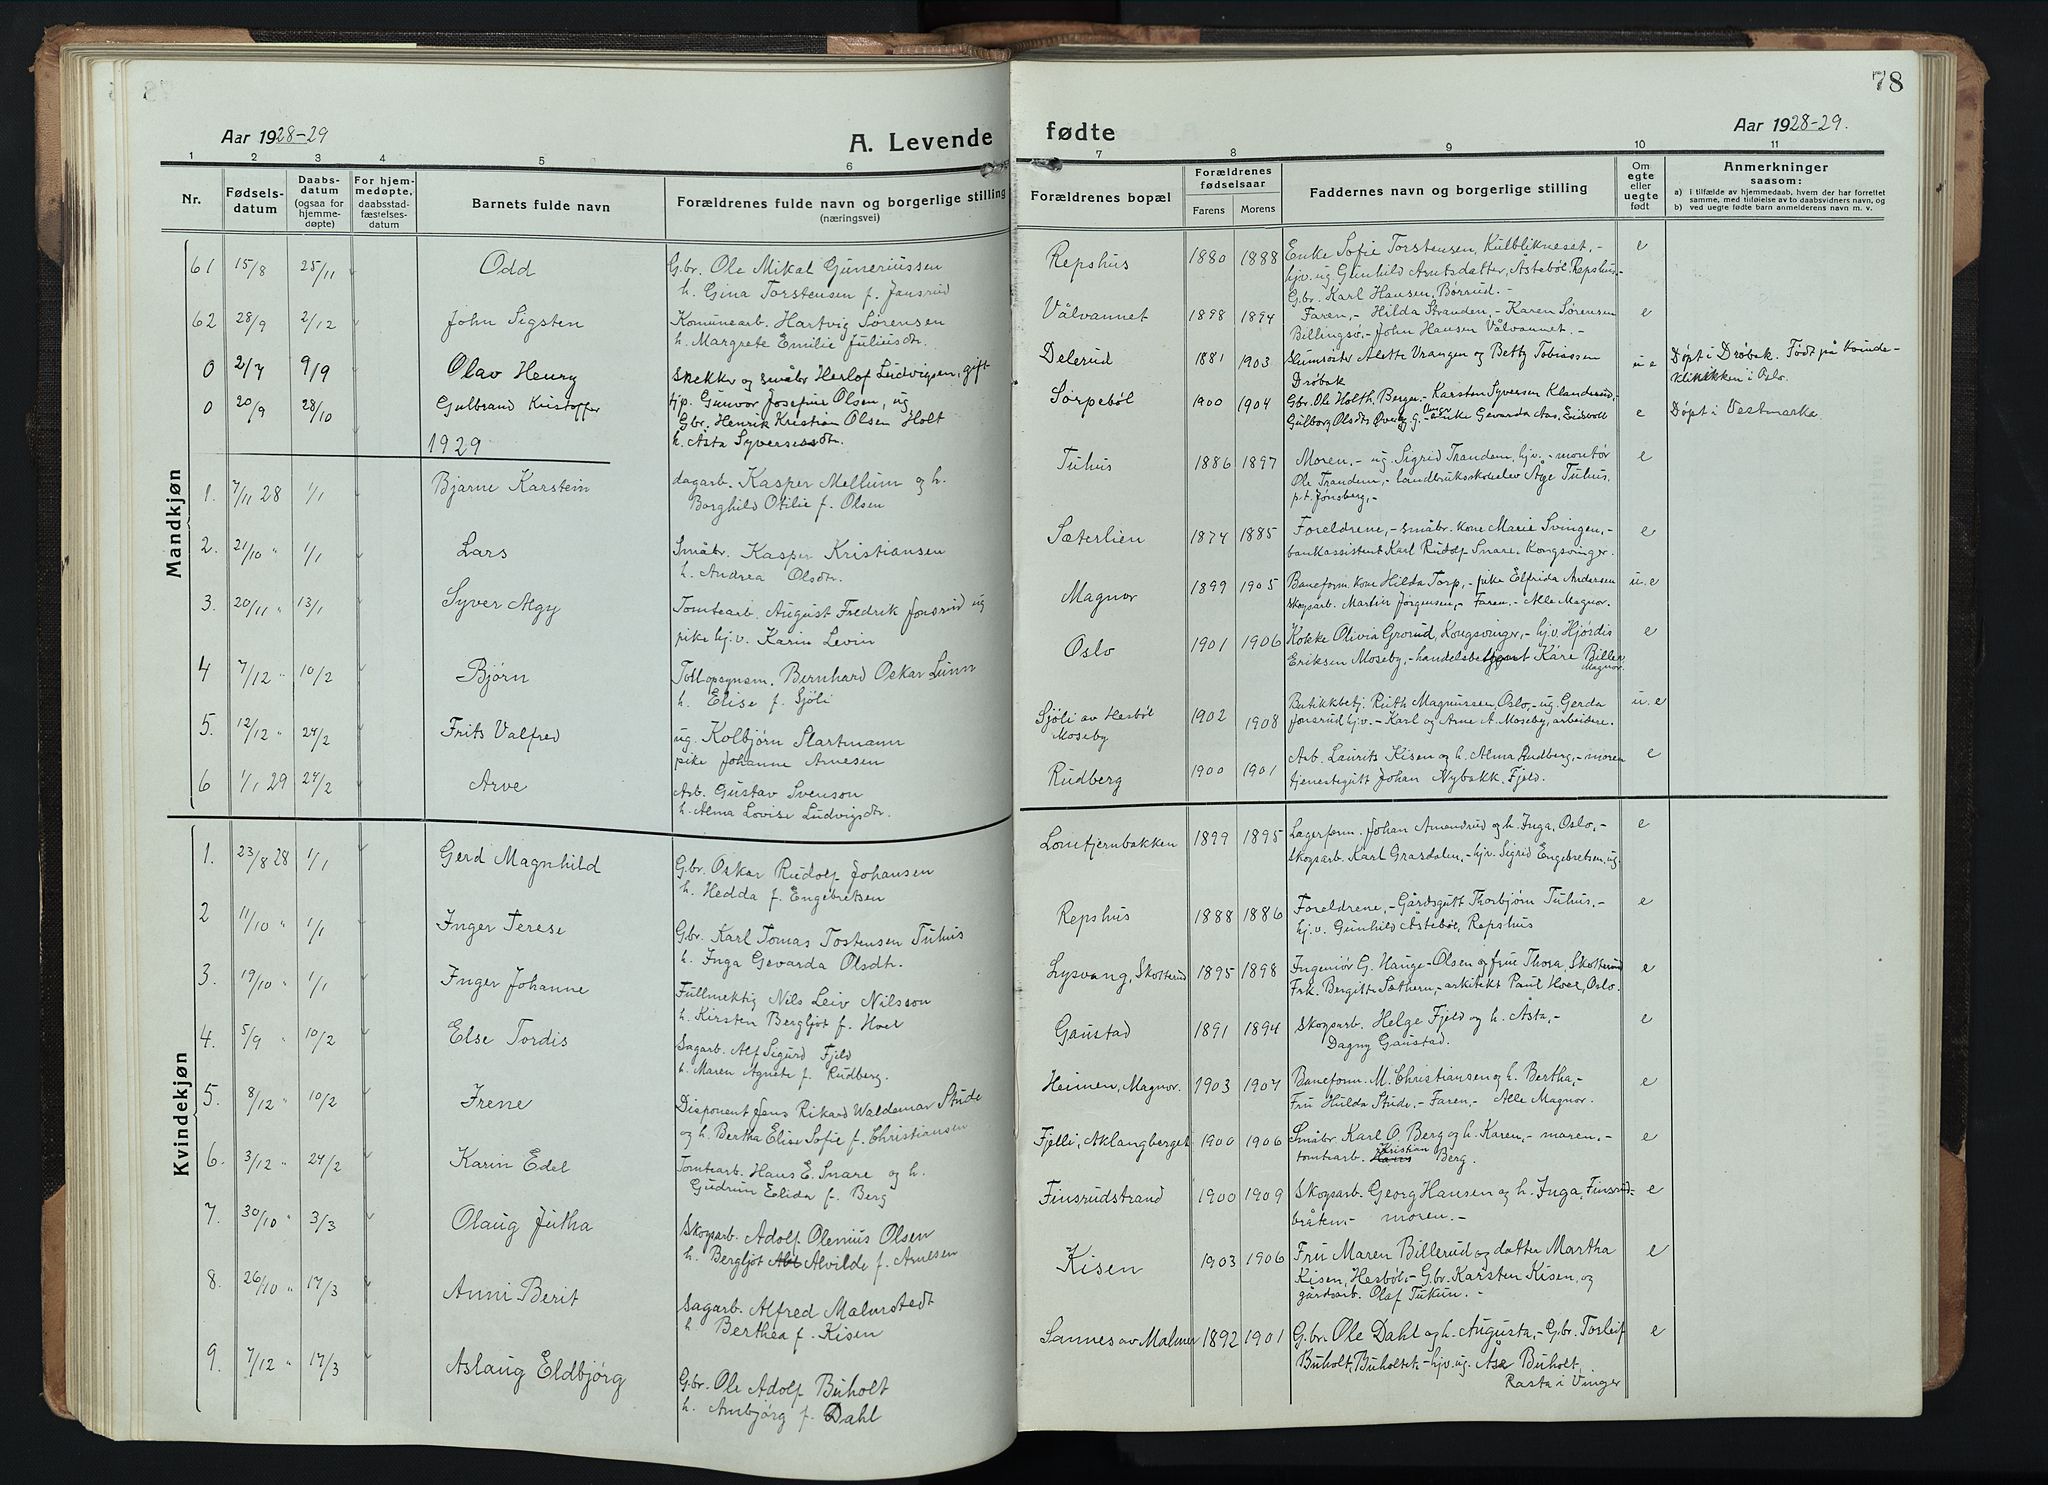 78
Aar 1928-29
A. Levende fødte
Aar 1928-29.
1 2 3 4 5 6 7 8 9 10 11
Nr.
Fødsels-
datum
Daabs-
datum
(ogsaa for
hjemme-
døpte)
For hjem-
medøpte,
daabsstad-
fæstelses-
datum
Barnets fulde navn
Forældrenes fulde navn og borgerlige stilling
(næringsvei)
Forældrenes bopæl
Forældrenes
fødselsaar
Farens Morens
Faddernes navn og borgerlige stilling
Om
egte
eller
uegte
født
Anmerkninger
saasom:
a) i tilfælde av hjemmedaab, hvem der har forrettet
samme, med tilføielse av to daabsvidners navn, og
b) ved uegte fødte barn anmelderens navn m. v.
Mandkjøn
61 15/8 25/11 Odd
Gbr. Ole Mikal Guneriussen
h. Gina Torstensen f. Jansrud
Repshus 1880 1888
Enke Sofie Torstensen, Kulblikneset,-
hjv. ug. Gunhild Arntsdatter, Åstebøl, Repshus,-
Gbr. Karl Hansen, Børrud.-
e
62 28/9 2/12 John Sigsten
Komunearb. Hartvig Sørensen
h. Margrete Emilie Juliusdtr.
Vålvannet 1898 1894
Faren,- Hilda Stranden,- Karen Sørensen
Billingsø,- John Hansen Vålvannet.-
e
0 2/7 9/9 Olav Henry
Snekker og småbr Herlof Ludvigsen, gift
hjp. Gunvor Josefine Olsen, ug
Delerud 1881 1903
Slumsøster Alette Vrangen og Betty Tobiassen
Drøbak
u e
Døpt i Drøbak. Født på Kvinde-
klinikken i Oslo.
0 20/9 28/10 Gulbrand Kristoffer
Gbr. Henrik Kristian Olsen Holt
h. Asta Syversensdtr.
Sørpebøl 1900 1904
Gbr. Ole Holth, Berger,- Karsten Syversen Klanderud,
Gulborg Olsdts Øverby g. Enke Gevarda Aas, Eidsvoll
e
Døpt i Vestmarka
1929
1. 7/11 28 1/1 Bjarne Karstein
dagarb. Kasper Mellum og h.
Borghild Otilie f. Olsen
Tuhus 1886 1897
Moren,- ug. Sigrid Trandem, hjv.- montør
Ole Trandem,- landbruksskoleelev Åge Tuhus,
p.t. Jønsberg,-
e
2. 21/10 " 1/1 Lars
Småbr. Kasper Kristiansen
h. Andrea Olsdtr.
Sæterlien 1874 1885
Foreldrene,- småbr. kone Marie Svingen,-
bankassistent Karl Rudolf Snare, Kongsvinger.
e
3. 20/11 " 13/1 Syver Algy
Tomtearb. August Fredrik Jonsrud ug
pike hj.v. Karin Levin
Magnor 1899 1905
Baneform. kone Hilda Torp,- pike Elfrida Andersen
skogsarb. Martin Jørgensen,- Faren.- Alle Magnor.
u. e
4 7/12 " 10/2 Bjørn
Tollopsynsm. Bernhard Oskar Lunn
h. Elise f. Sjøli
Oslo 1901 1906
Kokke Olivia Grorud, Kongsvinger,- hj.v. Hjørdis
Eriksen Moseby,- handelsbetjent Kåre Biller
Magnor.
e
5. 12/12 " 24/2 Frits Valfred
ug. Kolbjørn Slartmann
pike Johanne Arnesen
Sjøli av Hesbøl
Moseby
1902 1908
Butikkbetj. Ruth Magnussen, Oslo,- ug. Gerda
Jonsrud hj.v.- Karl og Arne A. Moseby, arbeidere.
u. e
6 1/1 29 24/2 Arve
Arb. Gustav Svenson
h. Alma Lovise Ludvigsdtr.
Rudberg 1900 1901
Arb. Laurits Kisen og h. Alma Rudberg,- moren
tjenestegutt Johan Nybakk, Fjeld.
e
Kvindekjøn
1. 23/8 28 1/1 Gerd Magnhild
Gbr. Oskar Rudolf Johansen
h. Hedda f. Engebretsen
Lomtjernbakken 1899 1895
Lagerform. Johan Amundrud og h. Inga, Oslo,-
skogsarb. Karl Grasdalen,- hj.v. Sigrid Engebretsen, ug.
e
2 11/10 " 1/1 Inger Terese
Gbr. Karl Tomas Tostensen Tuhus
h. Inga Gevarda Olsdtr.
Repshus 1888 1886
Foreldrene,- Gårdsgutt Thorbjørn Tuhus,-
hj.v. Gunhild Åstebøl, Repshus
e
3. 19/10 " 1/1 Inger Johanne
Fullmektig Nils Leiv Nilsson
h. Kirsten Bergljot f. Hoel
Lysvang, Skotterud 1895 1898
Ingeniør G. Hauge-Olsen og frue Thora, Skotterud
Frk. Bergitte Sæthern,- arkitekt Paul Hoel, Oslo.
e
4. 5/9 " 10/2 Else Tordis
Sagarb. Alf Sigurd Fjeld
h. Maren Agnete f. Rudberg.
Gaustad 1891 1894
Skogsarb. Helge Fjeld og h. Åsta,-
Dagny Gaustad.
e
5. 8/12 " 10/2 Irene
Disponent Jens Rikard Waldemar Stude
og h. Bertha Elise Sofie f. Christiansen
Heimen, Magnor. 1903 1904
Baneform. M. Christiansen og h. Bertha,-
Fru Hulda Stude,- Faren,- Alle Magnor.
e
6. 3/12 " 24/2 Karin Edel
Tomtearb. Hans E. Snare og h.
Gudrun Elida f. Berg
Fjelli, Aklangberget 1900 1906
Småbr Karl O. Berg og h. Karen,- moren,-
tomtearb. Hans Kristian Berg.
e
7. 30/10 " 3/3 Olaug Jutha
Skogsarb. Adolf Olenius Olsen
h. Bergljot Alvilde f. Arnesen
Finsrudstrand 1900 1909
Skogsarb. Georg Hansen og h. Inga, Finsrud-
bråten,- moren.-
e
8. 26/10 " 17/3 Anni Berit
Sagarb. Alfred Malmstedt
h. Berthea f. Kisen
Kisen 1903 1906
Fru Maren Billerud og datter Martha
Kisen, Hesbøl,- Gbr. Karsten Kisen, og
gårdsarb. Olaf Tukun.-
e
9. 7/12 " 17/3 Aslaug Eldbjørg
Gbr. Ole Adolf Buholt
h. Ambjørg f. Dahl
Sannes av Malmer 1892 1901
Gbr. Ole Dahl og h. Augusta,- Gbr. Torleif
Buholt, Buholtet,- hjv. ug. Åse Buholt,
Rasta i Vinger
e